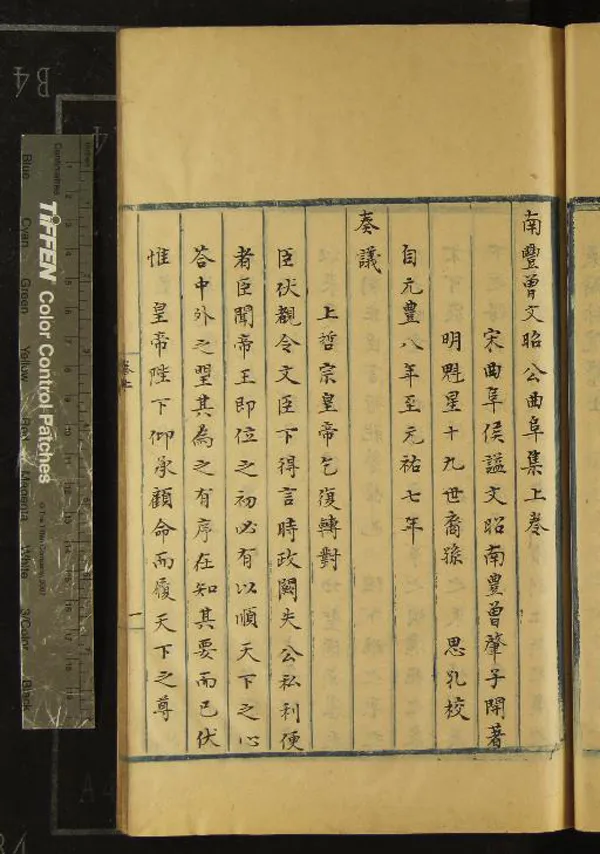 南豐曾文昭公曲阜集上卷
宋曲阜侯謚文昭南豐曾肇子開著
明魁星十九世裔孫 思孔校
自元豐八年至元祐七年
奏議
上哲宗皇帝乞復轉對
臣伏覩令文臣下得言時政闕失公私利便
者臣聞帝王即位之初必有以順天下之心
答中外之望其為之有序在知其要而已伏
惟 皇帝陛下仰承顧命而履天下之尊
卷上
一
B4
TIFFEN Color Control Patches
© The Tiffen Company, 2007
Centimetres
Inches
Blue
Cyan
Green
Yellow
Red
Magenta
White
3/Color
Black